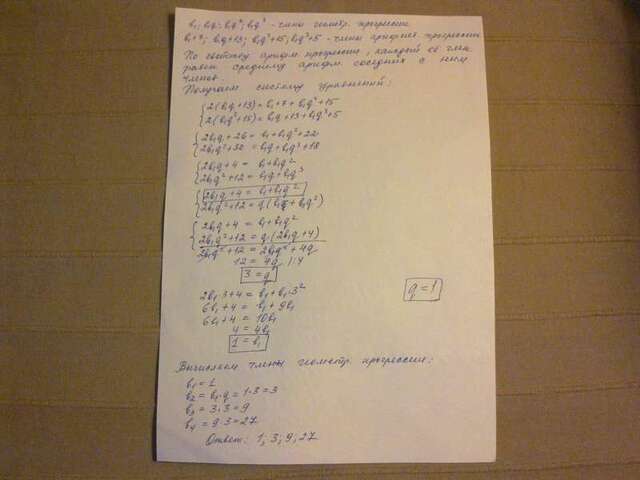 b₁; b₁q; b₁q²; b₁q³ - члены геометр. прогрессии
b₁+7; b₁q+13; b₁q²+15; b₁q³+5 - члены арифмет. прогрессии
По свойству арифм. прогрессии, каждый её член
равен среднему арифм. соседних с ним
членов.
Получаем систему уравнений:
{2(b₁q+13)=b₁+7+b₁q²+15
{2(b₁q²+15)=b₁q+13+b₁q³+5
{2b₁q+26=b₁+b₁q²+22
{2b₁q²+30=b₁q+b₁q³+18
{2b₁q+4=b₁+b₁q²
{2b₁q²+12=b₁q+b₁q³
{2b₁q+4=b₁+b₁q²
{2b₁q²+12=q(b₁+b₁q²)
{2b₁q+4=b₁+b₁q²
{2b₁q²+12=q·(2b₁q+4)
2b₁q²+12=2b₁q²+4q
12=4q |:4
3=q
2b₁·3+4=b₁+b₁·3²
6b₁+4=b₁+9b₁
6b₁+4=10b₁
4=4b₁
1=b₁
q=1
Вычисляем члены геометр. прогрессии:
b₁=1
b₂=b₁·q=1·3=3
b₃=3·3=9
b₄=9·3=27
Ответ: 1; 3; 9; 27